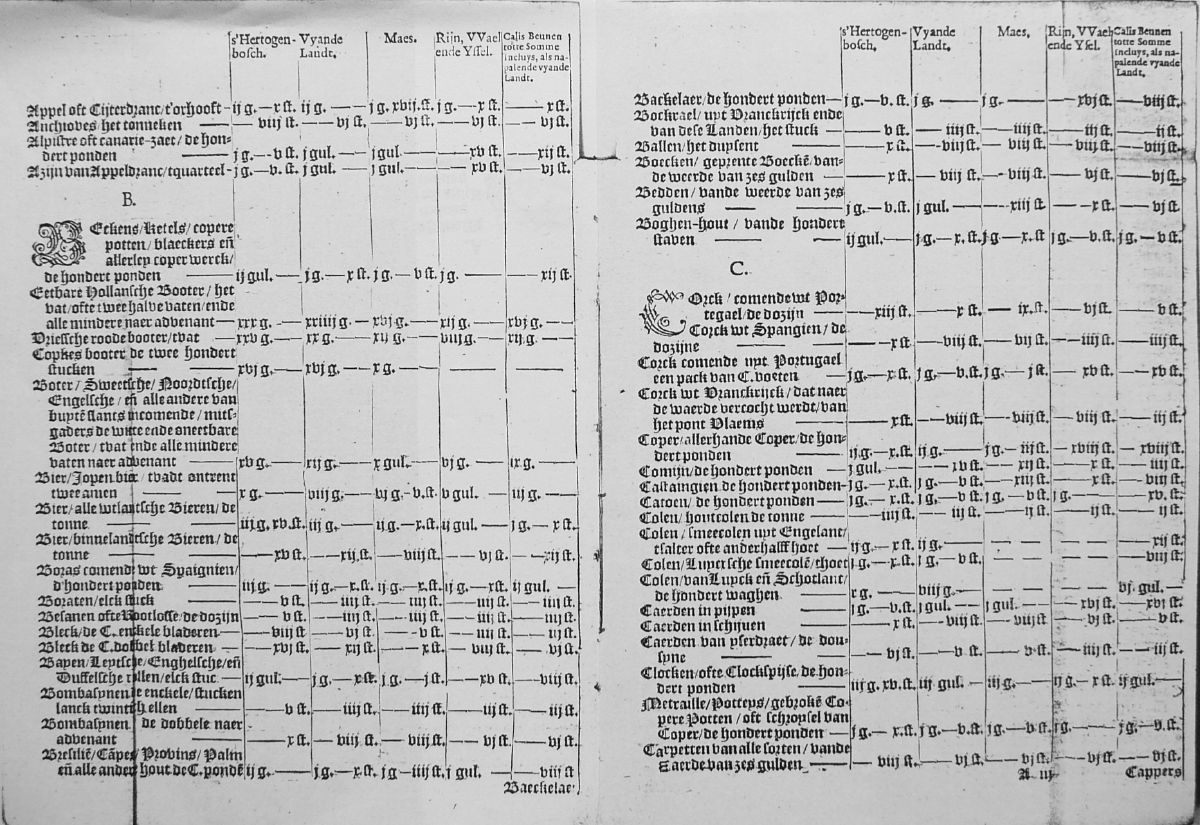 s'Hertogen- Vyande Maes. Rijn, VVael Calis Beunen
bosch. Landt. ende Yssel. totte Somme
incluys, als na-
palende vyande
Landt.
Appel oft Cijterdranc/t'orhooft - ij g.—x st. ij g. —— j g. xvij. st. j g. — x st. —— x st.
Anchioves het tonneken —— viij st. —— vj st. —— vj st. —— vj st. —— vj st.
Alpistre oft canarie-zaet/ de hon-
dert ponden —— j g.—v st. j gul. —— j gul. —— xv st. —— xij st.
Azijn van Appeldranc/tquarteel - j g.—v. st. j gul. —— j gul. —— xv st. —— vj st.
B.
BEckens/ketels/copere
potten/blaeckers eñ
allerley coper werck/
de hondert ponden —— ij gul. — j g. — x st. j g. — v st. j g. —— xij st.
Eetbare Hollansche Booter/het
vat/ofte twee halve vaten/ende
alle mindere naer advenant — xxx g. —— xxiiij g — xvj g. —— xij g. —— xvj g. ——
Vriessche roode booter/tvat —— xxv g. —— xx g. —— xij g. —— viij g. —— xij g. ——
Copkes booter de twee hondert
stucken —— xvj g. —— xvj g. —— x g. —— —— ——
Boter/Sweetsche/Noordtsche/
Engelsche/ eñ alle andere van
buyte slants incomende/nuts-
gaders de witte ende oneetbare
Boter/tvat ende alle mindere
vaten naer advenant —— xv g. —— xij g. —— x gul. —— vj g. —— ix g. ——
Bier/Jopen bier/tvadt ontrent
twee amen —— x g. —— viij g. —— vj g. - v. st. v gul. —— iij g. ——
Bier/alle wtlantsche Bieren/de
tonne —— iij g. xv. st. iij g. —— ij g. — x. st. ij gul. —— j g. — x st.
Bier/binnelandtsche Bieren/de
tonne —— xv st. —— xij st. —— viij st. —— vj st. —— xij st.
Boras comende wt Spaignien/
d'hondert ponden —— iij g. —— ij g. — x. st. ij g. — x. st. ij g. — x st. ij gul. ——
Boraten/elck stuck —— v st. —— iiij st. —— iiij st. —— iiij st. —— iiij st.
Besanen ofte Bootlosse/de dozijn —— v st. —— iiij st. —— iiij st. —— iiij st. —— iiij st.
Bleck/de C. enkele bladeren. —— viij st —— vj st. —— v st. —— iiij st —— iij st.
Bleck de C. dobbel bladeren —— xvj st. —— xij st. —— x st. —— viij st —— vj st.
Bayen/Leytsche/Enghelsche/eñ
Duffelsche rollen/elck stuc. — ij gul. — j g. — x st. j g. — j st. —— xv st —— viij st.
Bombasynen de enckele/stucken
lanck twintich ellen —— v st. —— iiij st. —— iiij st. —— iij st. —— iij st.
Bombasynen de dobbele naer
advenant —— x st. —— viij st. —— viij st. —— vj st. —— vj st.
Bresilie/Cape/Provins/Palm
eñ alle ander hout de C. ponde ij g. —— j g. — x. st j g. — iiij st. j gul. —— viij st
Baeckelae-
s'Hertogen- Vyande Maes. Rijn, VVael- Calis Beunen
bosch. Landt. ende Yssel. totte Somme
incluys, als na-
palende vyande
Landt.
Backelaer/de hondert ponden — j g. — v. st. j g. —— j g. —— xvj st. —— viij st.
Bockrael/uyt Vranckrijck ende
van dese Landen/het stuck — —— v st. —— iiij st. —— iiij st. —— iij st. —— ij st.
Ballen/het duysent —— x st. —— viij st. —— viij st. —— viij st. —— viij st.
Boecken/geprente Boecke van-
de weerde van zes gulden — —— x st. —— viij st. —— viij st. —— vj st. —— vj st.
Bedden/vande weerde van zes
guldens —— j g. — v. st. j gul. —— xiij st —— x st. —— vj st.
Boghen-hout/vande hondert
staven —— ij gul. — j g. — x. st. j g. — x. st j g. — v. st. j g. — v st.
C.
COrck/comende wt Por-
tegael/de dozijn —— xiij st —— x st. —— ix. st. —— vj st. —— v st.
Corck wt Spangien/de
dozijne —— x st. —— viij st —— vj st. —— iiij st. —— iiij st.
Corck comende uyt Portugael
een pack van C. voeten —— j g. — x st. j g. — v. st. j g. — j st. —— xv st —— xv st.
Corck wt Vranckrijck/dat naer
de waerde vercocht werdt/van
het pont Vlaems —— x st. —— viij st. —— viij st. —— viij st. —— iij st.
Coper/allerhande Coper/de hon-
dert ponden —— ij g. — x. st. ij g. —— j g. — iij st. —— xviij st —— xviij st.
Comijn/de hondert ponden — j gul. —— xv st. —— xij st —— x st. —— iiij st.
Castaingien de hondert ponden — j g. — x. st. j g. — v st. —— xiij st —— x st. —— vj st.
Catoen/ de hondert ponden — j g. — x. st. j g. — v st. j g. — v st. j g. —— xv. st.
Colen/houtcolen de tonne —— iiij st. —— iij st —— ij st. —— ij st —— ij st.
Colen/smeecolen uyt Engelant/
tsalter ofte anderhalff hoet — ij g. — x st. ij g. —— —— —— —— xij st.
Colen/Luycsche smeecole/thoet j g. — x. st. j g. — v st. —— —— —— viij st.
Colen/van Luyck eñ Schotlant/
de hondert waghen —— x g. —— viij g. —— —— —— vj. gul. ——
Caerden in pijpen —— j g. — v. st. j gul. —— j gul. —— xvj st. —— xvj st.
Caerden in schijven —— x st. —— viij st —— viij st. —— vj st. —— v st.
Caerden van yserdraet/ de dou-
syne —— vj st. —— v st. —— v st. —— iiij st. —— iij st.
Clocken/ofte Clockspijse/de hon-
dert ponden —— iij g. xv. st. iij gul. —— iij g. —— ij g. — x st ij gul. ——
Metraille/Potteys/gebroke Co-
pere Potten/oft schroysel van
Coper/de hondert ponden — j g. — x. st. j g. — v. st. j g. — v. st. j g. —— j g. — v. st.
Carpetten van alle sorten/vande
Waerde van zes gulden. —— viij st. —— vj st. —— vj st. —— vj st. —— vj st.
A iij Cappers